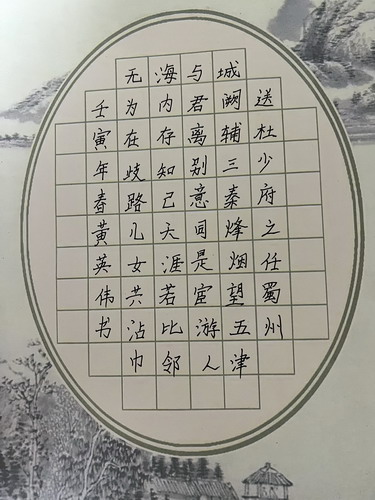 送杜少府之任蜀州
城阙辅三秦烽烟望五津
与君离别意同是宦游人
海内存知己天涯若比邻
无为在歧路儿女共沾巾
壬寅年春黄英伟书